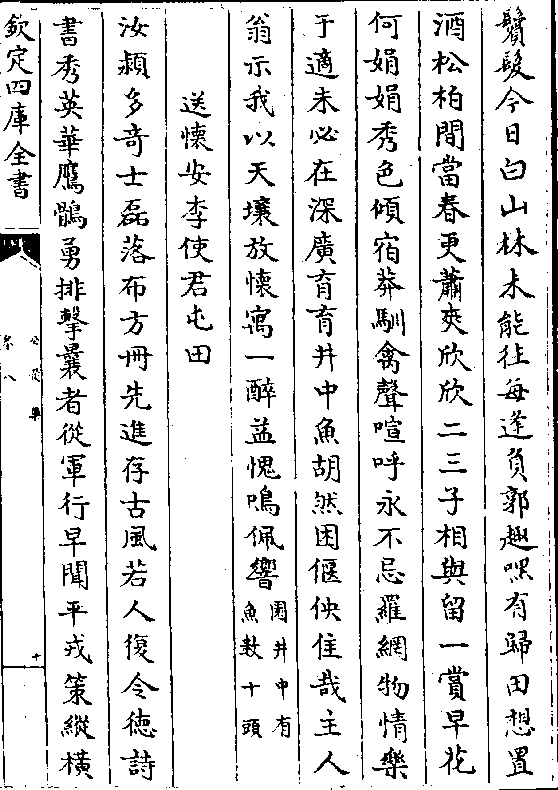 鬢髮今日白山林未能往每逢負郭趣嘿有歸田想置
酒松柏間當春更蕭爽欣欣二三子相與留一賞早花
何娟娟秀色傾宿莽馴禽聲喧呼永不忌羅網物情樂
于適未必在深廣育育井中魚胡然困偃佒佳哉主人
翁示我以天壤放懷寓一醉益愧鳴佩響園井中有魚數十頭
送懷安李使君屯田
汝潁多奇士磊落布方冊先進存古風若人復令德詩
書秀英華鷹鶻勇排擊曩者從軍行早聞平戎策縱橫
欽定四庫全書
卷八
十